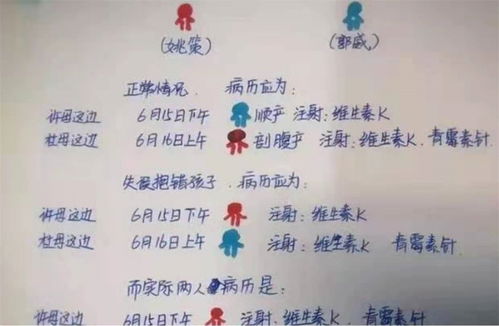 (姚策) (郭威)
正常情况, 病历应为:
许母这边 6月15日下午 顺产 注射:维生素K
杜母这边 6月16日上午 剖腹产 注射:维生素K、青霉素针
失误抱错孩子, 病历应为:
许母这边 6月15日下午 注射:维生素K
杜母这边 6月16日上午 注射:维生素K、青霉素针
而实际两人病历是:
许母这边 6月15日下午 注射、维生素K、青霉素针